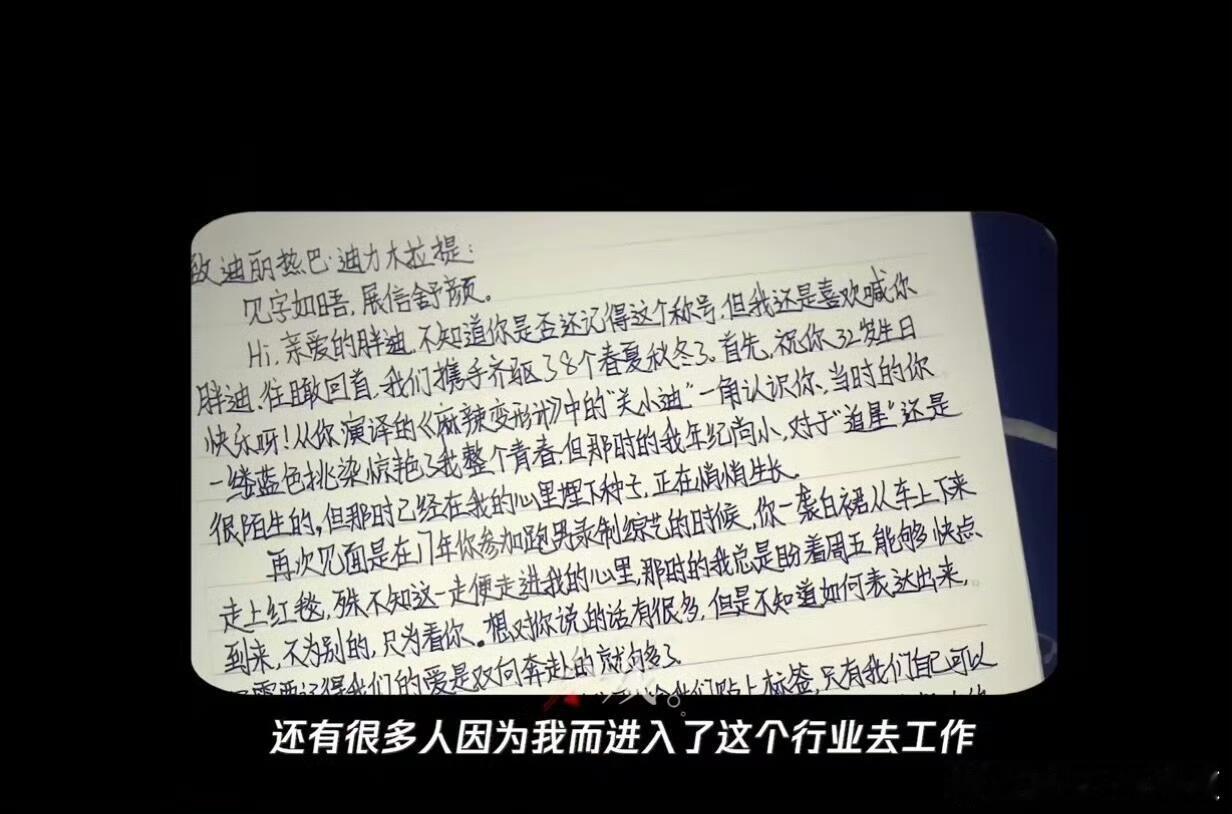 致迪丽热巴·迪力木拉提：
见字如晤，展信舒颜。
Hi，亲爱的胖迪，不知道你是否还记得这个称号，但我还是喜欢喊你
胖迪，往瞰回首，我们携手齐驱了8个春夏秋冬了。首先，祝你32岁生日
快乐呀！从你演译的《麻辣变形计》中的“关小迪”一角认识你、当时的你
一缕蓝色挑染惊艳了我整个青春，但那时的我年纪尚小，对于“追星”还是
很陌生的，但那时已经在我的心里埋下种子，正在悄悄生长。
再次见面是在17年你参加跑男录制综艺的时候，你一袭白裙从车上下来
走上红毯，殊不知这一走便走进我的心里，那时的我总是盼着周五能够快点
到来，不为别的，只为看你。想对你说的话有很多，但是不知道如何表达出来，
需要记得我们的爱是双向奔赴的就够了
我们贴上标签，只有我们自己可以
还有很多人因为我而进入了这个行业去工作